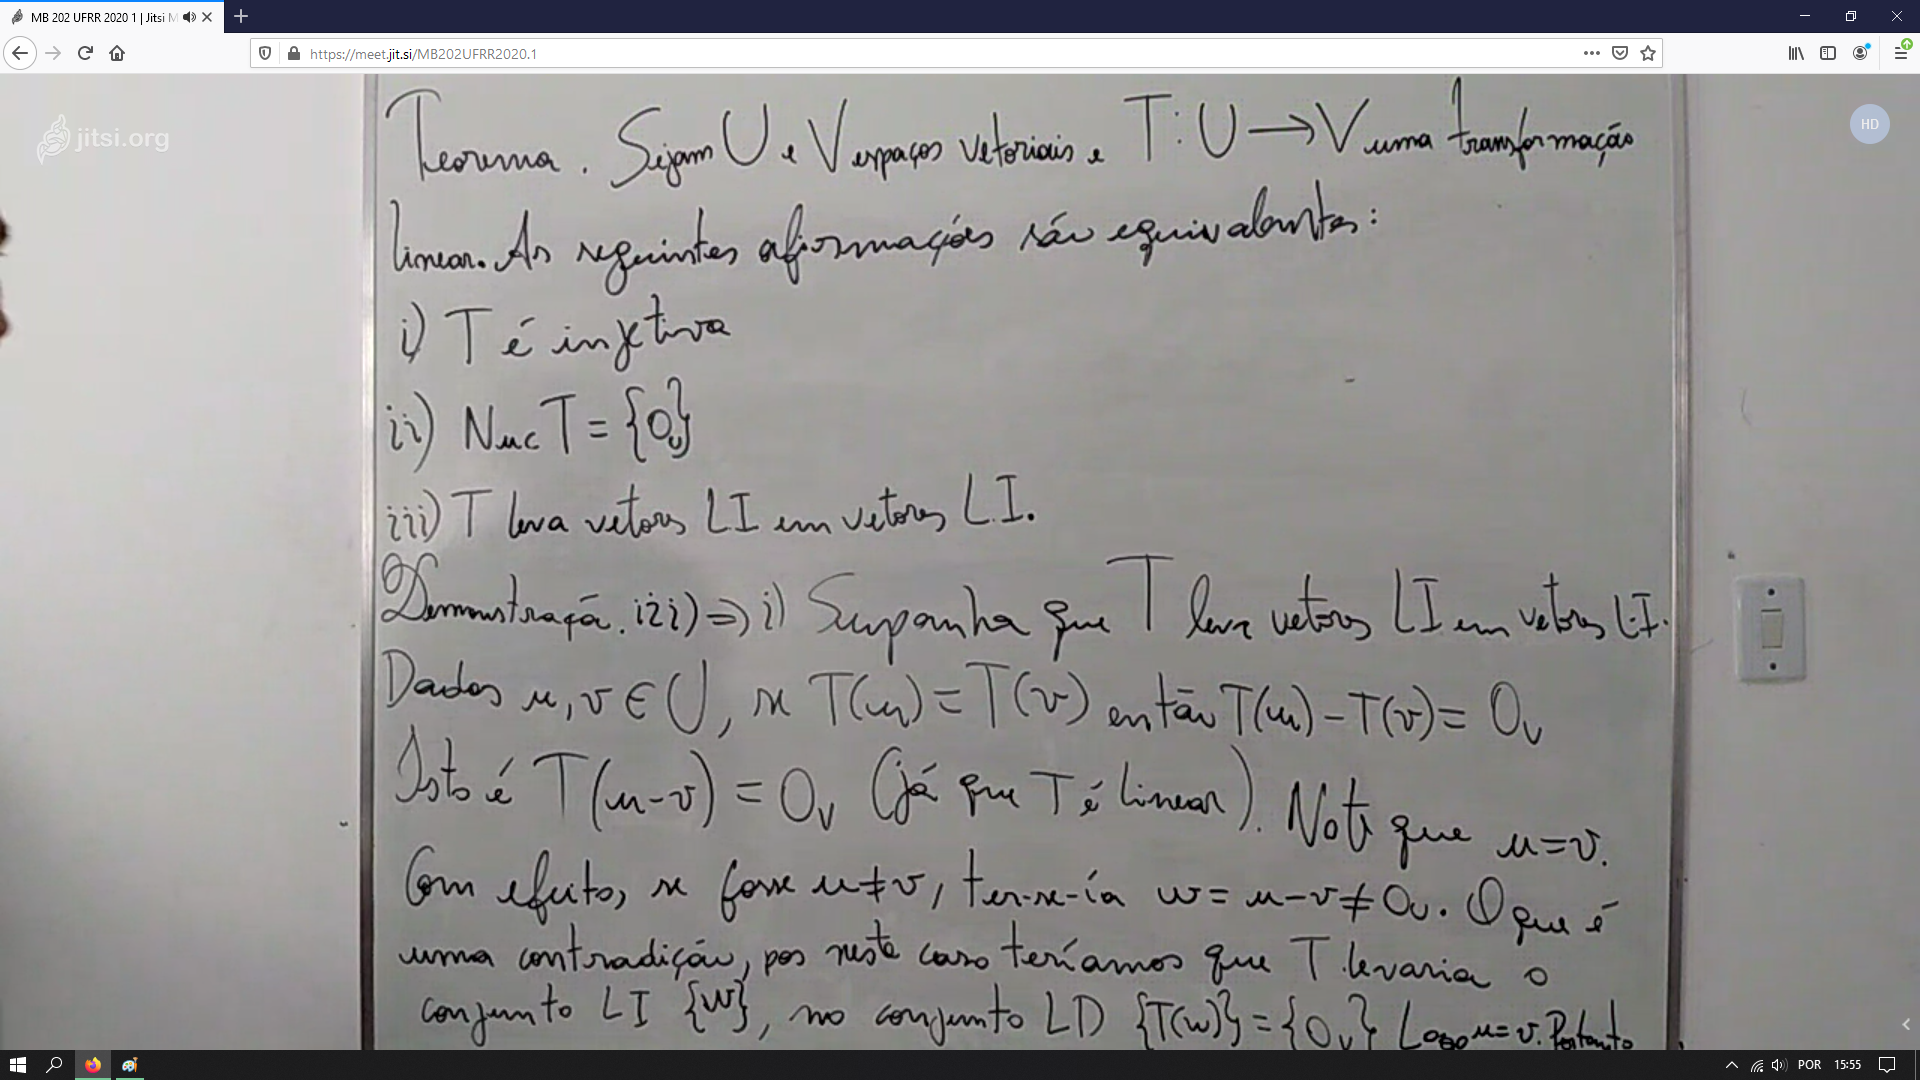 MB 202 UFRR 2020 1 | Jitsi M
https://meet.jit.si/MB202UFRR2020.1
jitsi.org
HD
Teorema. Sejam U e V espaços vetoriais e T: U → V uma transformação
linear. As seguintes afirmações são equivalentes:
i) T é injetiva
ii) Nuc T = {0_U}
iii) T leva vetores LI em vetores L.I.
Demonstração. iii) ⇒ i) Suponha que T leva vetores LI em vetores L.I.
Dados u, v ∈ U, se T(u) = T(v) então T(u) - T(v) = 0_V
Isto é T(u-v) = 0_V (já que T é linear). Note que u = v.
Com efeito, se fosse u ≠ v, ter-se-ía w = u - v ≠ 0_U. O que é
uma contradição, pos neste caso teríamos que T levaria o
conjunto LI {w}, no conjunto LD {T(w)} = {0_V} Logo u = v. Portanto
POR
15:55